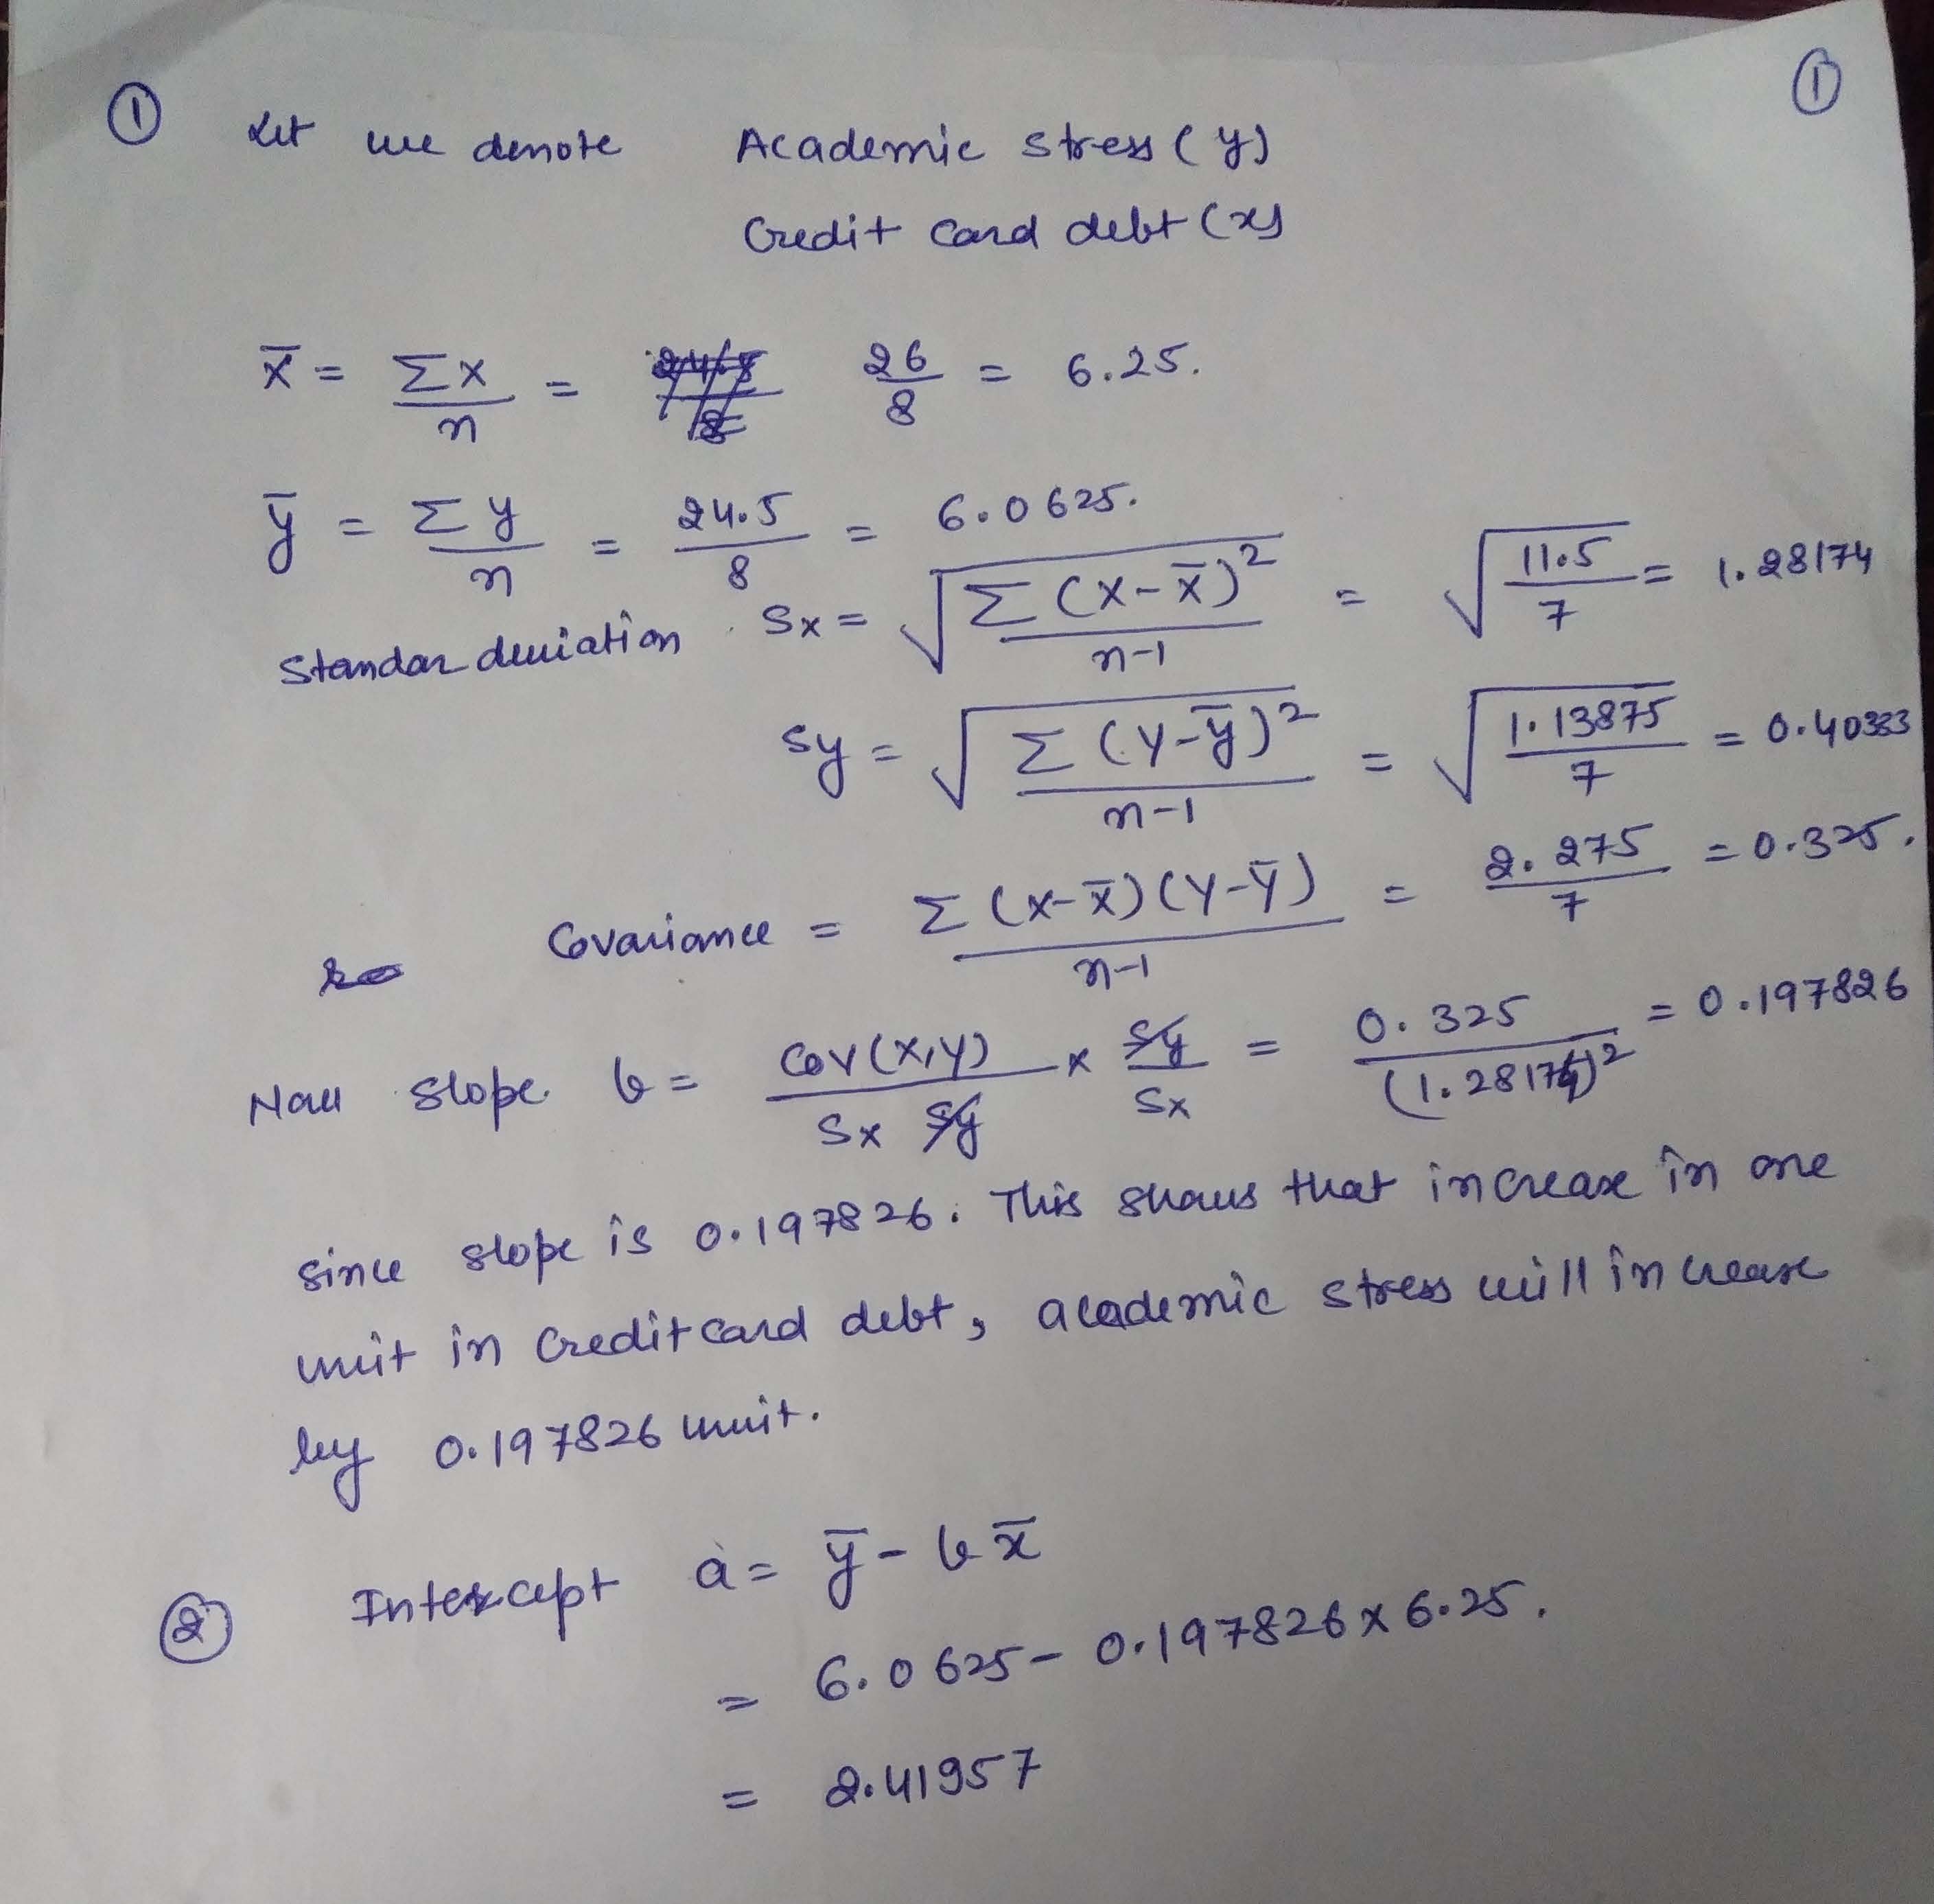 ①
① Let we denote Academic stress (y)
Credit card debt (x)
x̄ = Σx/n = 26/8 = 6.25.
ȳ = Σy/n = 24.5/8 = 6.0625.
Standar deviation Sx = √(Σ(x-x̄)²/n-1) = √(11.5/7) = 1.28174
Sy = √(Σ(y-ȳ)²/n-1) = √(1.13875/7) = 0.40333
Covariance = Σ(x-x̄)(y-ȳ)/n-1 = 2.275/7 = 0.325.
Now slope b = Cov(x,y)/Sx Sy × Sy/Sx = 0.325/(1.28174)² = 0.197826
Since slope is 0.197826. This shows that increase in one
unit in Credit card debt, academic stress will increase
by 0.197826 unit.
② Intercept a = ȳ - b x̄
= 6.0625 - 0.197826 x 6.25.
= 2.41957